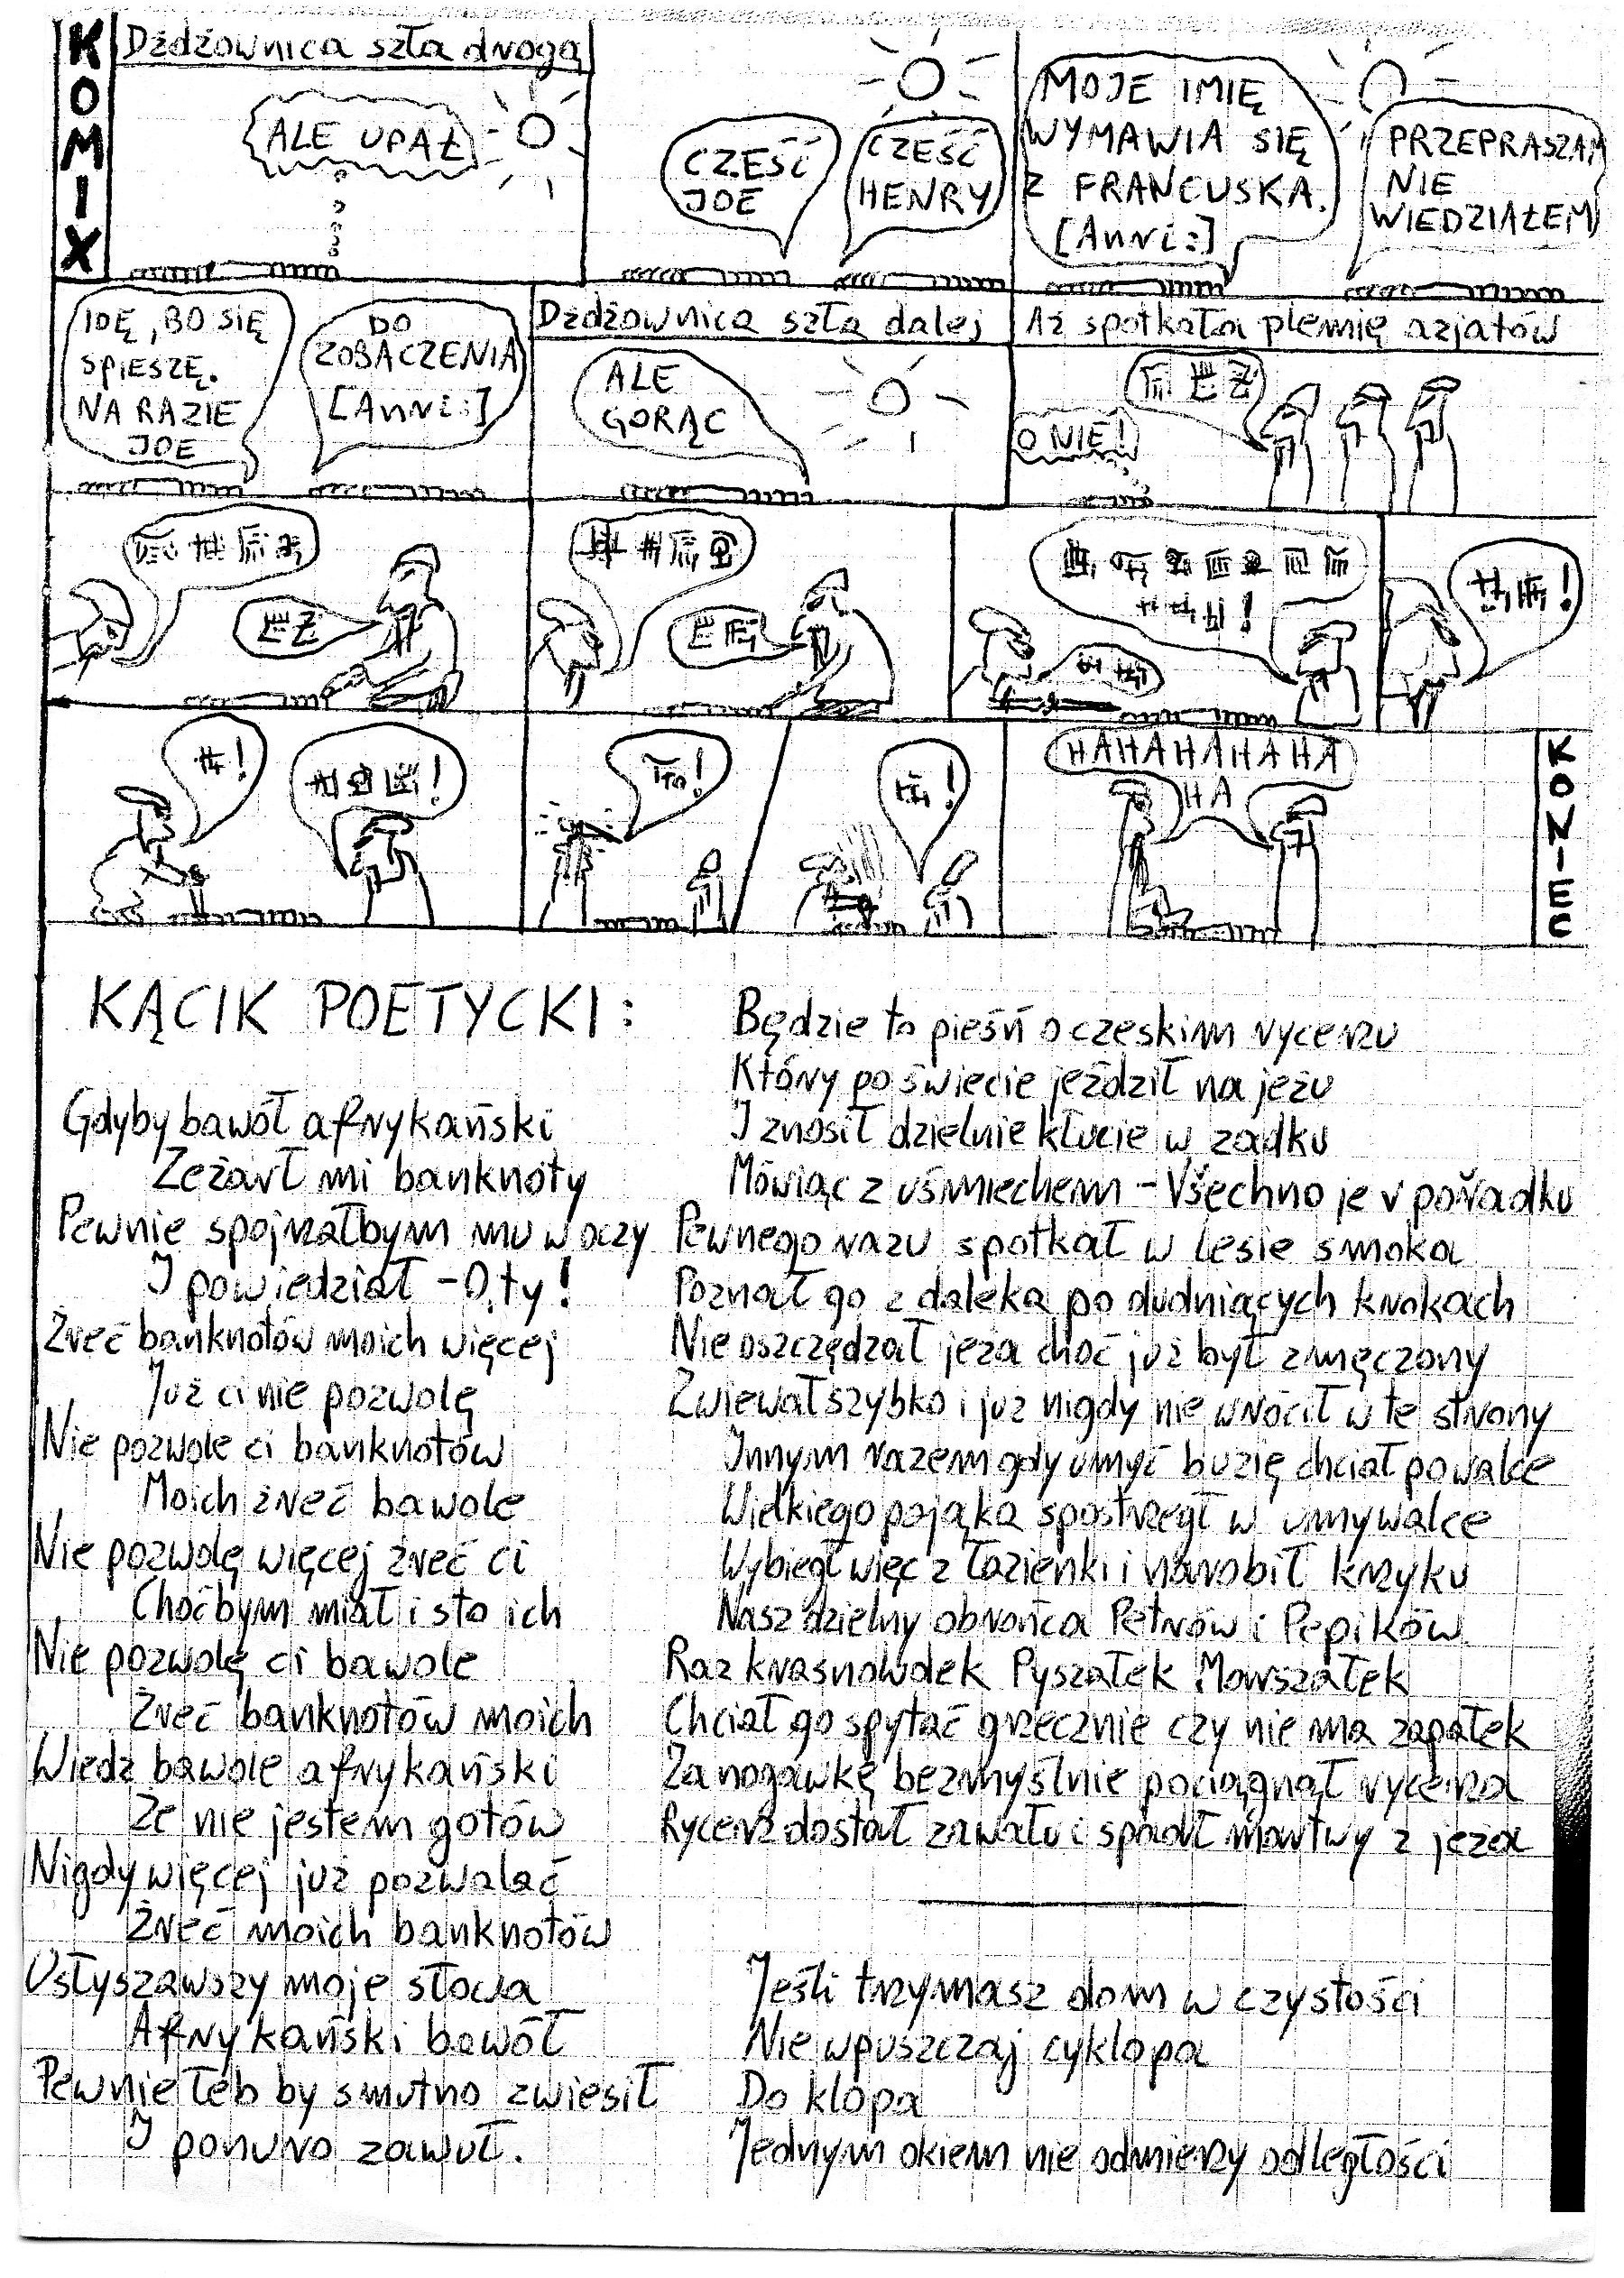 KOMIX
Dżdżownica szła drogą
ALE UPAŁ
CZEŚĆ
JOE
CZEŚĆ
HENRY
MOJE IMIĘ
WYMAWIA SIĘ
Z FRANCUSKA.
[Anri:]
PRZEPRASZAM
NIE
WIEDZIAŁEM
IDĘ, BO SIĘ
SPIESZĘ.
NA RAZIE
JOE
DO
ZOBACZENIA
[Anri:]
Dżdżownica szła dalej
ALE
GORĄC
Aż spotkała plemię azjatów
O NIE!
HAHAHAHAHA
HA
KONIEC
KĄCIK POETYCKI:
Gdyby bawół afrykański
Zeżarł mi banknoty
Pewnie spojrzałbym mu w oczy
I powiedział – O, ty!
Żreć banknotów moich więcej
Już ci nie pozwolę
Nie pozwolę ci banknotów
Moich żreć bawole
Nie pozwolę więcej żreć ci
Choćbym miał i sto ich
Nie pozwolę ci bawole
Żreć banknotów moich
Wiedz bawole afrykański
Że nie jestem gotów
Nigdy więcej już pozwalać
Żreć moich banknotów
Usłyszawszy moje słowa
Afrykański bawół
Pewnie łeb by smutno zwiesił
I ponuro zawył.
Będzie to pieśń o czeskim rycerzu
Który po świecie jeździł na jeżu
I znosił dzielnie kłucie w zadku
Mówiąc z uśmiechem – Všechno je v pořadku
Pewnego razu spotkał w lesie smoka
Poznał go z daleka po dudniących krokach
Nie oszczędzał jeża choć już był zmęczony
Zwiewał szybko i już nigdy nie wrócił w te strony
Innym razem gdy umyć buzię chciał po walce
Wielkiego pająka spostrzegł w umywalce
Wybiegł więc z łazienki i narobił krzyku
Nasz dzielny obrońca Petrów i Pepików
Raz krasnoludek Pyszałek Morszałek
Chciał go spytać grzecznie czy nie ma zapałek
Za nogawkę bezmyślnie pociągnął rycerza
Rycerz dostał zawału i spadł martwy z jeża
Jeśli trzymasz dom w czystości
Nie wpuszczaj cyklopa
Do klopa
Jednym okiem nie odmierzy odległości